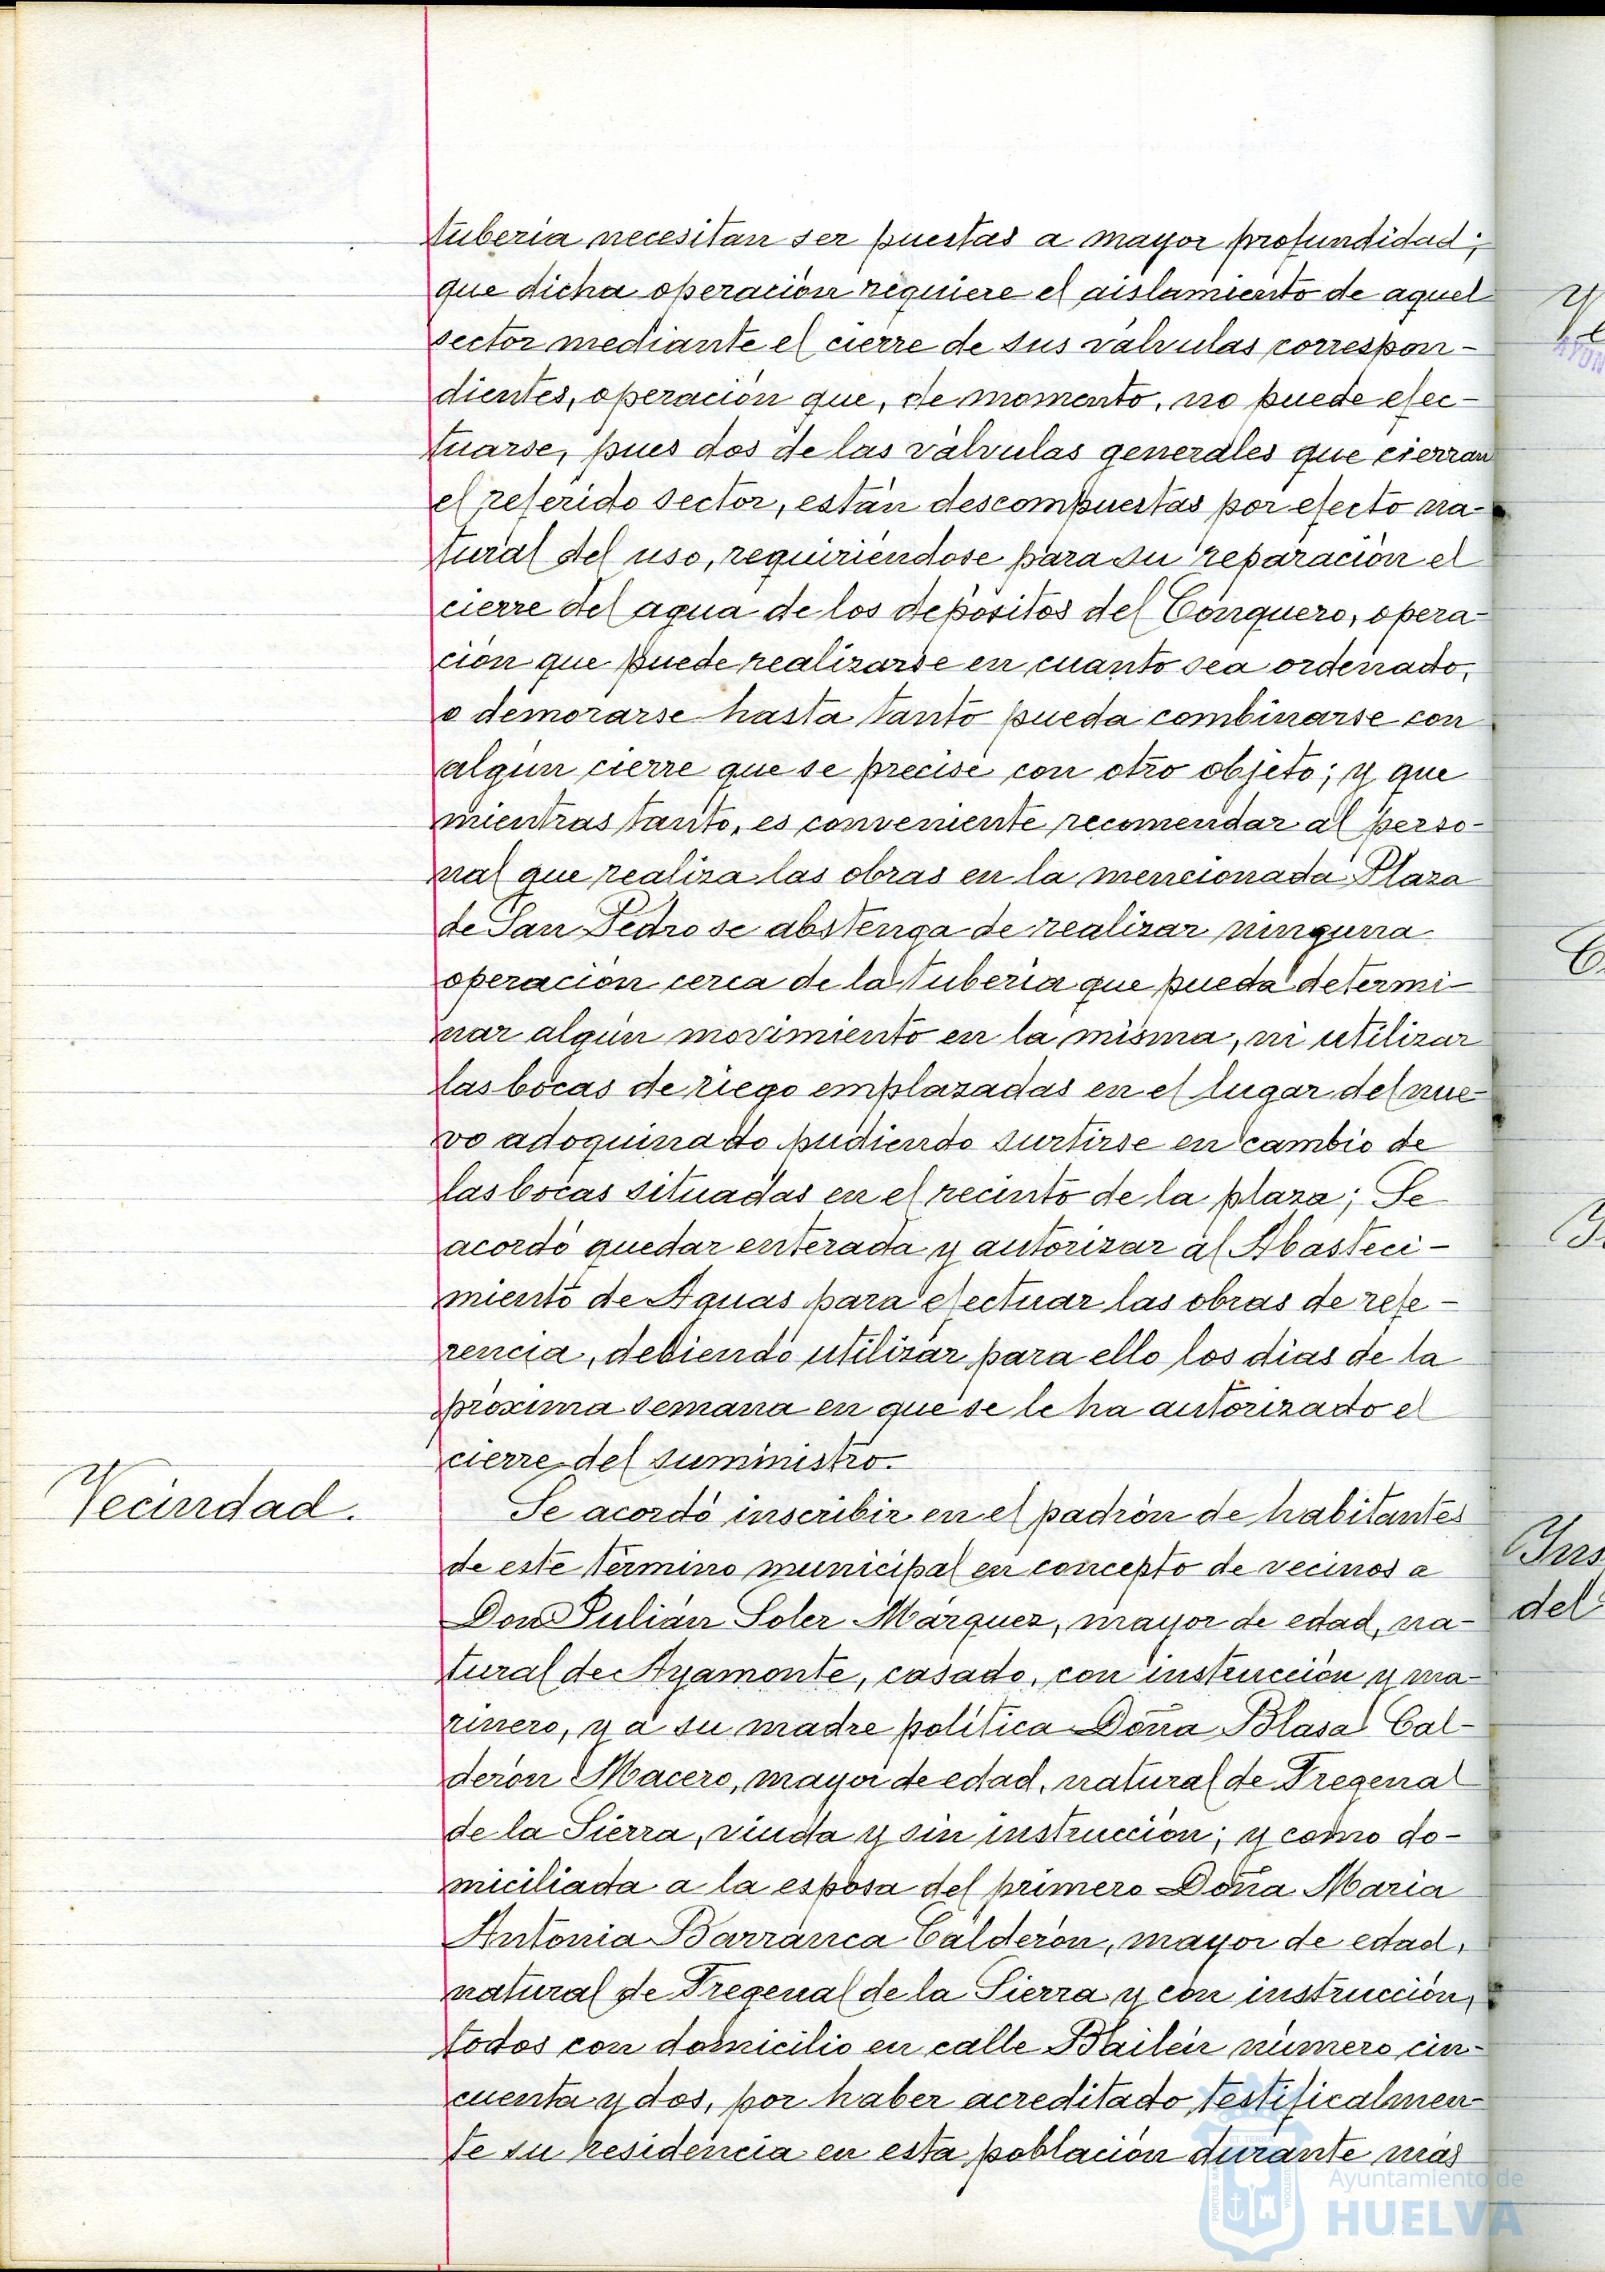 tuberia necesitan ser puestas a mayor profundidad;
que dicha operación requiere el aislamiento de aquel
sector mediante el cierre de sus válvulas correspon-
dientes, operación que, de momento, no puede efec-
tuarse, pues dos de las válvulas generales que cierran
el referido sector, están descompuestas por efecto na-
tural del uso, requiriéndose para su reparación el
cierre del agua de los depósitos del Conquero, opera-
ción que puede realizarse en cuanto sea ordenado,
o demorarse hasta tanto pueda combinarse con
algún cierre que se precise con otro objeto; y que
mientras tanto, es conveniente recomendar al perso-
nal que realiza las obras en la mencionada Plaza
de San Pedro se abstenga de realizar ninguna
operación cerca de la tuberia que pueda determi-
nar algún movimiento en la misma, ni utilizar
las bocas de riego emplazadas en el lugar del nue-
vo adoquinado pudiendo surtirse en cambio de
las bocas situadas en el recinto de la plaza; Se
acordó quedar enterada y autorizar al Abasteci-
miento de Aguas para efectuar las obras de refe-
rencia, debiendo utilizar para ello los dias de la
próxima semana en que se le ha autorizado el
cierre del suministro.
Vecindad.
Se acordó inscribir en el padrón de habitantes
de este término municipal en concepto de vecinos a
Don Julián Soler Márquez, mayor de edad, na-
tural de Ayamonte, casado, con instrucción y ma-
rinero, y a su madre política Doña Blasa Cal-
derón Macero, mayor de edad, natural de Fregenal
de la Sierra, viuda y sin instrucción; y como do-
miciliada a la esposa del primero Doña Maria
Antonia Barranca Calderón, mayor de edad,
natural de Fregenal de la Sierra y con instrucción,
todos con domicilio en calle Bailén número cin-
cuenta y dos, por haber acreditado testificalmen-
te su residencia en esta población durante más
Ins
del
Ayuntamiento de
HUELVA